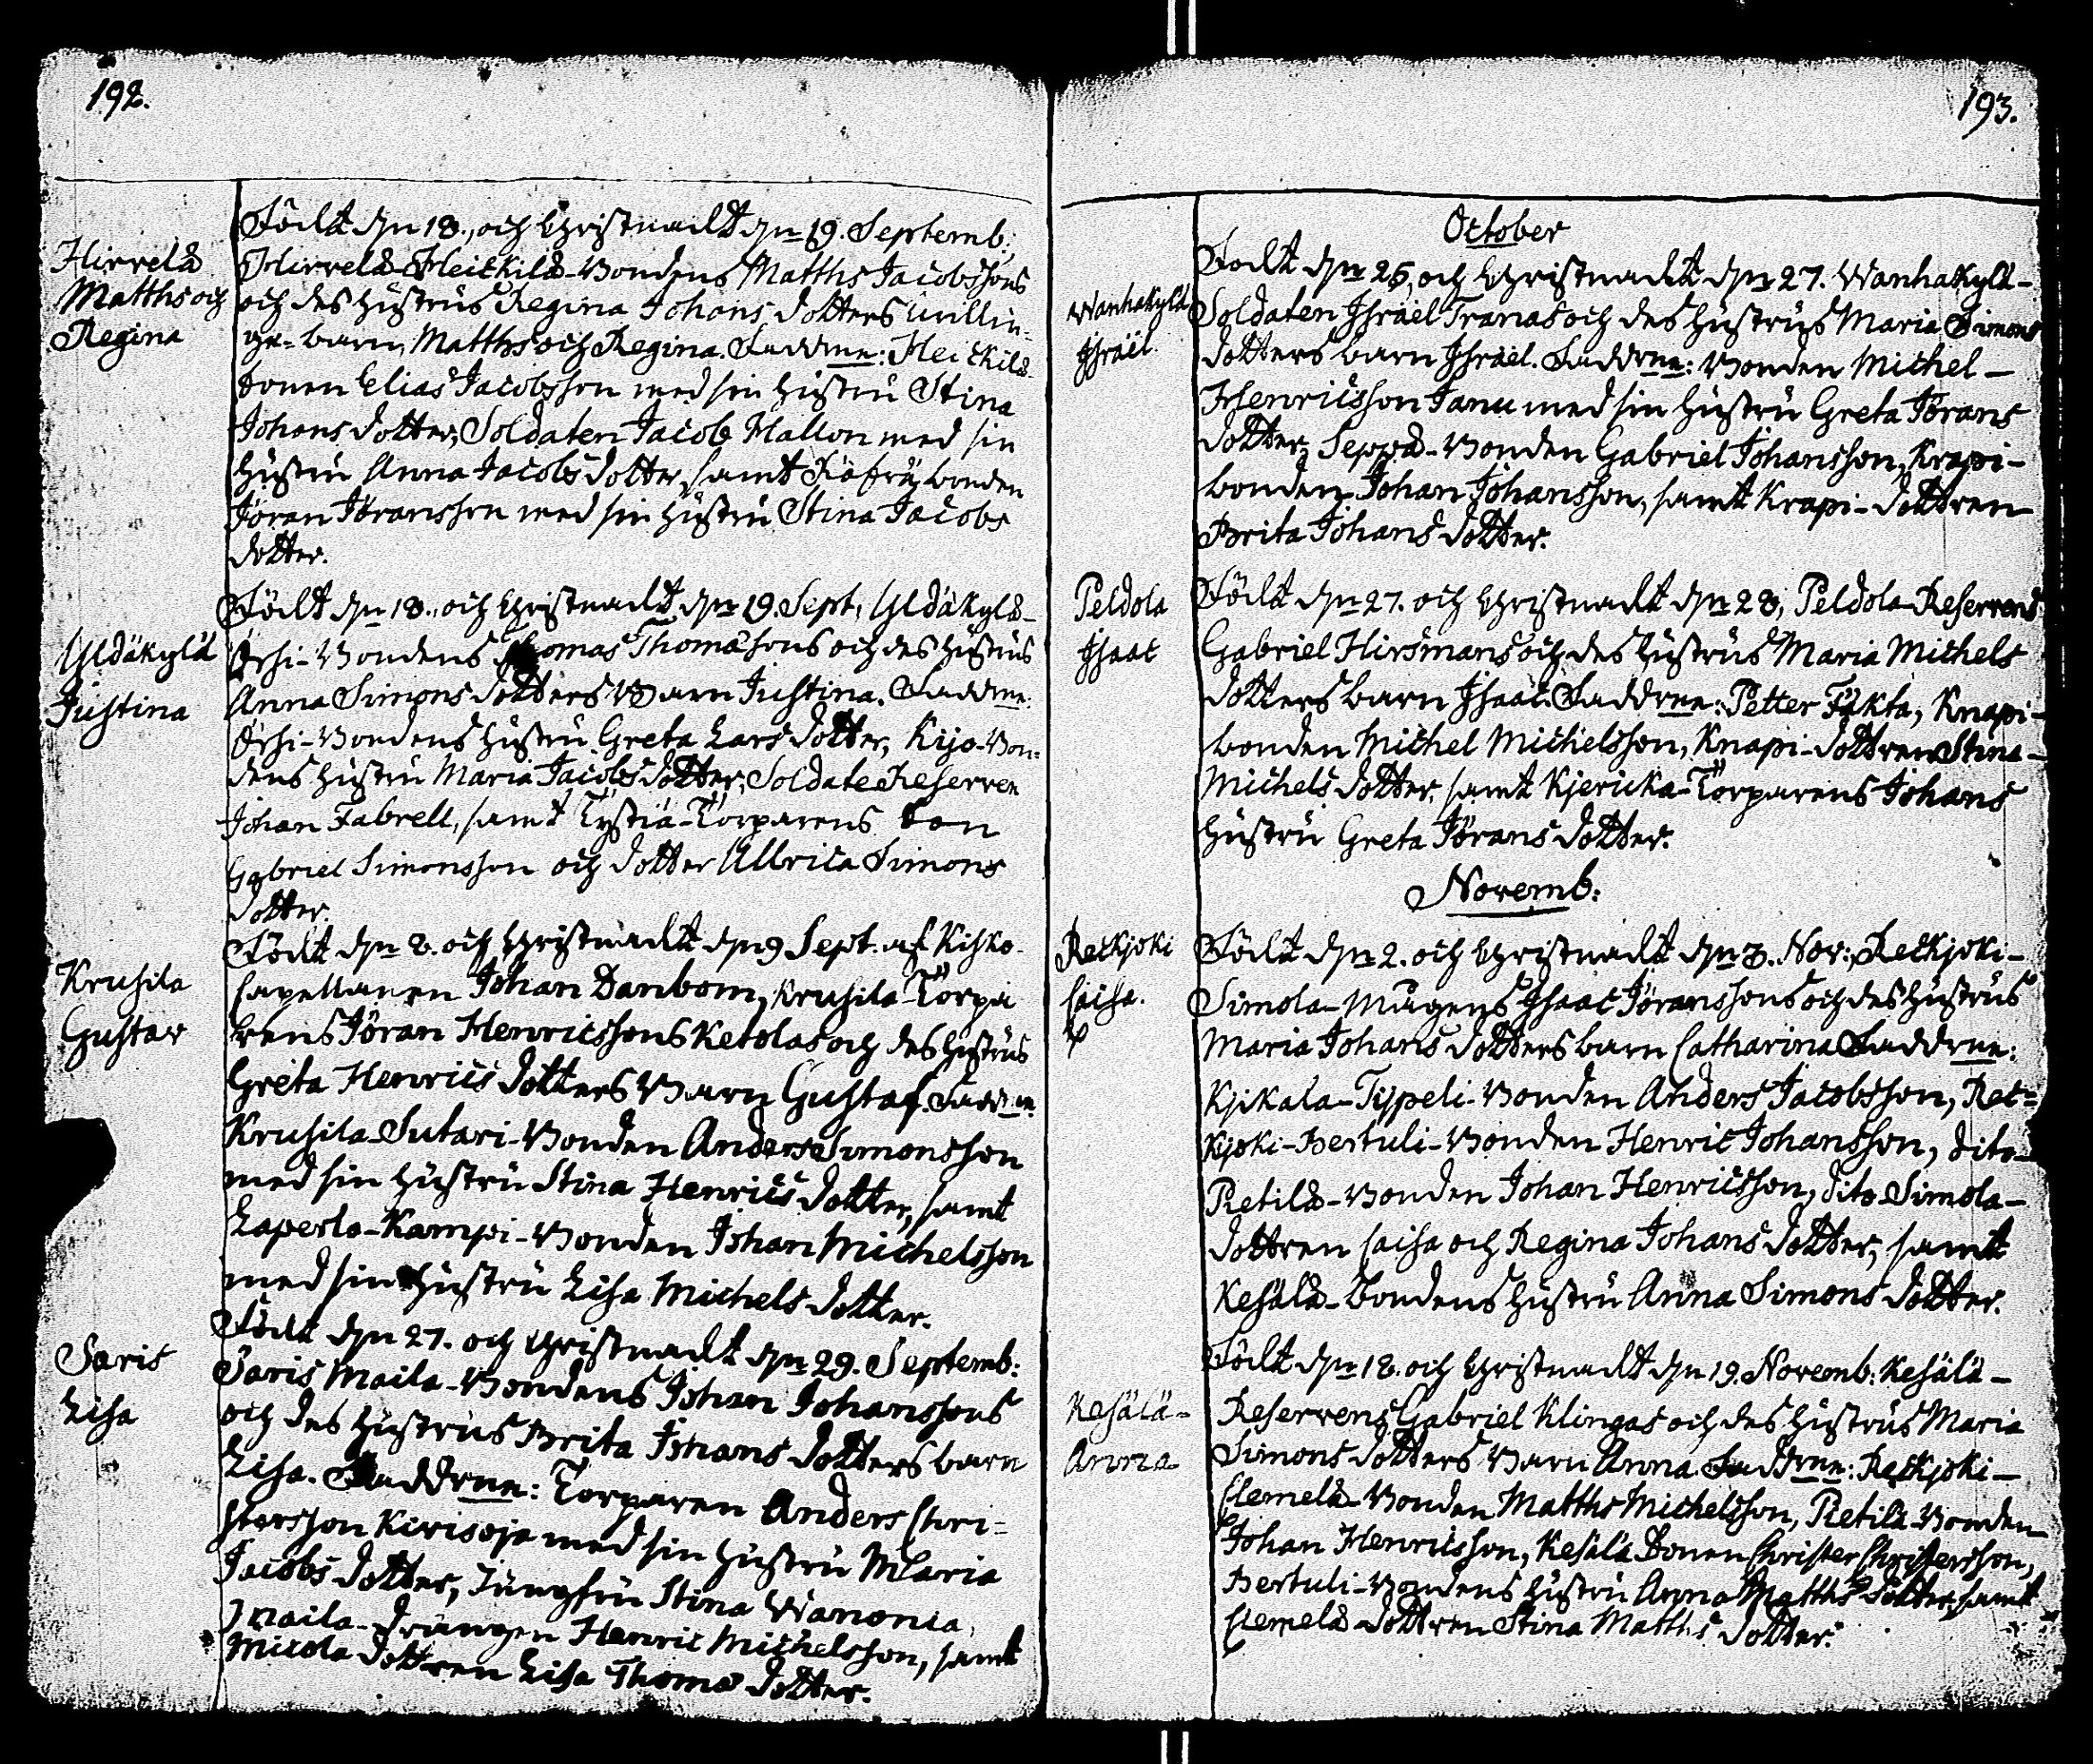 192.
Hirrelä
Matths och
Regina
Födt d. 18., och Christnadt d. 19. Septemb:
Hirrelä-Heickilä-Bondens Matths Jacobssons
och des hustrus Regina Johans dotters twillin-
ge-barn, Matths och Regina. Faddrne: Heickilä-
bonen Elias Jacobsson med sin hustru Stina
Johans dotter, Soldaten Jacob Mallon med sin
hustru Anna Jacobs dotter, samt bonden
Jöran Jöransson med sin hustru Stina Jacobs
dotter.
Yldäkylä
Justina
Födt d. 18., och Christnadt d. 19. Sept. Yldäkylä-
Orhi-Bondens Thomas Thomæsons och des hustrus
Anna Simons dotters Barn Justina. Faddrne:
Orhi-Bondens hustru Greta Lars dotter, Kijo-Bon-
dens hustru Maria Jacobs dotter, Soldate Reserven
Johan Fabrell, samt Tystiä-Torparens Son
Gabriel Simonsson och dotter Ullrica Simons
dotter.
Krusila
Gustav
Födt d. 8. och Christnadt d. 9 Sept. af Kisko
Capellanen Johan Danbom, Krusila-Torpa
rens Jöran Henricssons Ketolas och des hustrus
Greta Henrics dotters Barn Gustaf. Faddrne:
Krusila-Sutari-Bonden Anders Simonsson
med sin hustru Stina Henrics dotter, samt
Laperla-Kampi-Bonden Johan Michelsson
med sin hustru Lisa Michels dotter.
Saris
Lisa
Födt d. 27. och Christnadt d. 29. Septemb:
Saris Maila-Bondens Johan Johanssons
och des hustrus Brita Johans dotters barn
Lisa. Faddrne: Torparen Anders Chri-
stersson Kivisoja med sin hustru Maria
Jacobs dotter, Jungfru Stina Wanonia,
Maila-drängen Henric Michelsson, samt
Micola dottren Lisa Thomæ dotter.
193.
October
Wanhakylä
Jsraël.
Födt d. 26, och Christnadt d. 27. Wanhakylä-
Soldaten Jsraël Tranas och des hustrus Maria Simons
dotters barn Jsraël. Faddrne: Bonden Michel
Henricsson Janu med sin hustru Greta Jörans
dotter, Seppä-Bonden Gabriel Johansson, Krapi-
bonden Johan Johansson, samt Krapi-dottren
Brita Johans dotter.
Peldola
Jsaac
Födt d. 27. och Christnadt d. 28, Peldola-Reservens
Gabriel Hirsmans och des hustrus Maria Michels
dotters barn Jsaac. Faddrne: Petter Fäkta, Knapi-
bonden Michel Michelsson, Knapi-dottren Stina
Michels dotter, samt Kjericka-Torparens Johans
hustru Greta Jörans dotter.
Novemb:
Reckjoki
Caisa.
Födt d. 2. och Christnadt d. 3. Nov: Reckjoki-
Simola-Mågens Jsaac Jöranssons och des hustrus
Maria Johans dotters barn Catharina. Faddrne:
Kjikala-Typeli-Bonden Anders Jacobsson, Rec-
kjoki-Bertuli-Bonden Henric Johansson, dito
Pietilä-Bonden Johan Henricsson, dito Simola-
dottren Caisa och Regina Johans dotter, samt
Kesälä-Bondens hustru Anna Simons dotter.
Kesälä-
Anna
Födt d. 18. och Christnadt d. 19. Novemb: Kesälä-
Reservens Gabriel Klingas och des hustrus Maria
Simons dotters Barn Anna. Faddrne: Reckjoki-
Clemelä-Bonden Matths Michelsson, Pietilä-Bonden
Johan Henricsson, Kesälä Bonen Christer Christersson,
Bertuli-Bondens hustru Anna Matths dotter, samt
Clemelä dottren Stina Matths dotter.